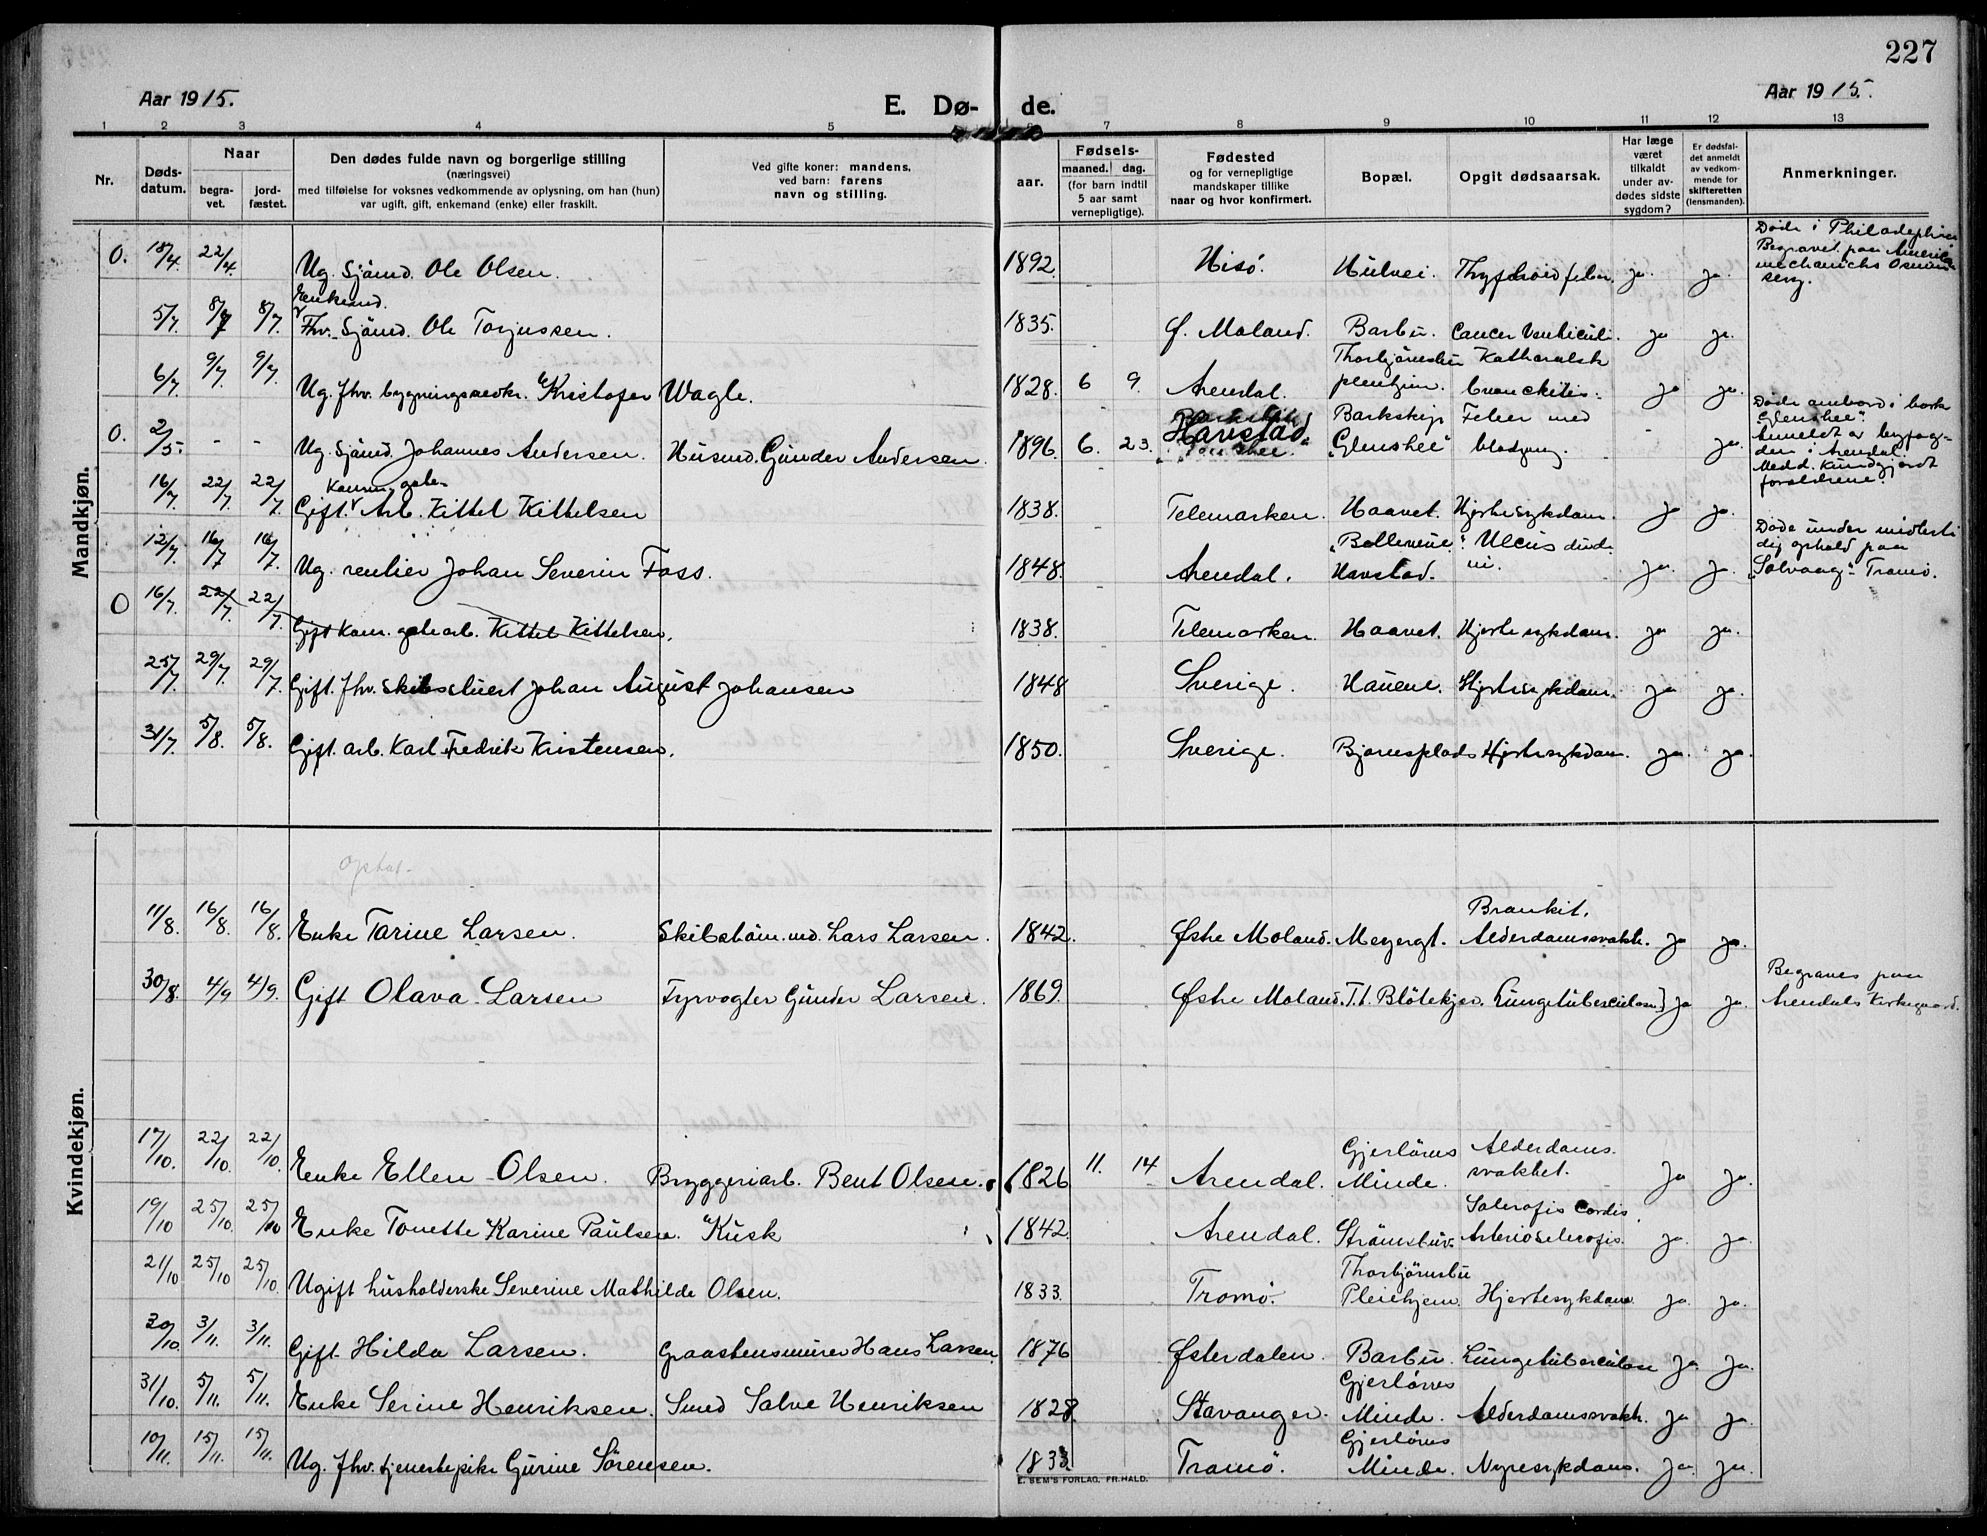 227
Aar 1915.
E. Dø- de.
Aar 1915.
1 2 3 4 5 6 7 8 9 10 11 12 13
Nr.
Døds-
datum.
Naar
begra-
vet.
jord-
fæstet.
Den dødes fulde navn og borgerlige stilling
(næringsvei)
med tilføielse for voksnes vedkommende av oplysning, om han (hun)
var ugift, gift, enkemand (enke) eller fraskilt.
Ved gifte koner: mandens,
ved barn: farens
navn og stilling.
aar.
Fødsels-
maaned. dag.
(for barn indtil
5 aar samt
vernepligtige).
Fødested
og for vernepligtige
mandskaper tillike
naar og hvor konfirmert.
Bopæl.
Opgit dødsaarsak.
Har læge
været
tilkaldt
under av-
dødes sidste
sygdom?
Er dødsfal-
det anmeldt
av vedkom-
mende for
skifteretten
(lensmanden).
Anmerkninger.
Mandkjøn.
0. 18/4. 22/4. Ug. Sjömd. Ole Olsen. 1892. Hisö. Hulvei. ja. ja.
Døde i Philadephia
Begravet paa
Enkemd.
5/7. 8/7 8/7. Fhv. Sjömd. Ole Torjussen. 1835. Ø. Moland. Barbu. Cancer Ventriculi. ja ja.
6/7. 9/7. 9/7. Ug. fhv. Kristofer Wagle. 1828. 6 9. Arendal. Thorbjörnsbu pleiehjem. Katharalsk bronchitis. ja ja.
0. 2/5. - - Ug. Sjömd. Johannes Andersen. Husmd. Gunder Andersen. 1896. 6. 23. Havstad Barkskip "Glenshee" Feber med ja.
Døde ombord i bark
"Glenshee".
Anmeldt av byfog-
den i Arendal.
Medd. kundgjordt
forældrene.
16/7. 22/7. 22/7. Gift. Arb. Kittel Kittelsen 1838. Telemarken. Haavet. Hjertesykdom. ja ja.
12/7. 16/7 16/7. Ug. rentier Johan Severin Foss. 1848. Arendal. "Bellevue" Havstad. Ulcus duode- ni. ja. ja.
Døde under midlerti
dig ophold paa
"Solvaag" Tromö.
0 16/7. 22/7. 22/7. Gift Kom. arb. Kittel Kittelsen. 1838. Telemarken. Haavet. Hjertesykdom. ja ja.
25/7. 29/7. 29/7. Gift. fhv. Skibsstuert Johan August Johansen 1848 Sverige. Hauene. Hjertesykdom. ja ja.
31/7. 5/8. 5/8. Gift. arb. Karl Fredrik Kristensen. 1850. Sverige. Bjornsplads Hjertesykdom. ja. ja.
Kvindekjøn.
11/8. 16/8. 16/8. Enke Tarine Larsen. Skibstöm.md. Lars Larsen. 1842. Østre Moland. Meyergt. Bronkit. Alderdomssvakh. ja ja.
30/8. 4/9 4/9. Gift Olava Larsen Fyrvogter Gunder Larsen. 1869. Østre Moland. T.t. Blötekjær. Lungetuberculose ja ja.
Begraves paa
Arendals Kirkegaard.
17/10. 22/10. 22/10. Enke Ellen Olsen. Bryggeriarb. Bent Olsen. 1826 11. 14 Arendal. Gjerlöws Minde. Alderdoms- svakhet. ja ja.
19/10 25/10. 25/10 Enke Tonette Karine Paulsen. Kusk 1842. Arendal. Strömsbu. Sclerosis Cordis. Arteriosclerosis. ja. ja.
21/10 25/10 25/10. Ugift husholderske Severine Mathilde Olsen. 1833. Tromö. Thorbjörnsbu Pleiehjem. Hjertesykdom ja. ja.
30/10. 3/11. 3/11. Gift Hilda Larsen. Graastensmurer Hans Larsen. 1876 Østerdalen. Barbu. Lungetuberculose ja. ja.
31/10. 5/11. 5/11. Enke Serine Henriksen. Smed Salve Henriksen 1828. Stavanger. Gjerlöws Minde. Alderdomssvakh. ja ja.
10/11. 15/11. 15/11. Ug. fhv. tjenestepike Gurine Sörensen. 1833. Tromö. Gjerlöws Minde. Nyresykdom. ja. ja.
E. SEM'S FORLAG, FR.HALD.